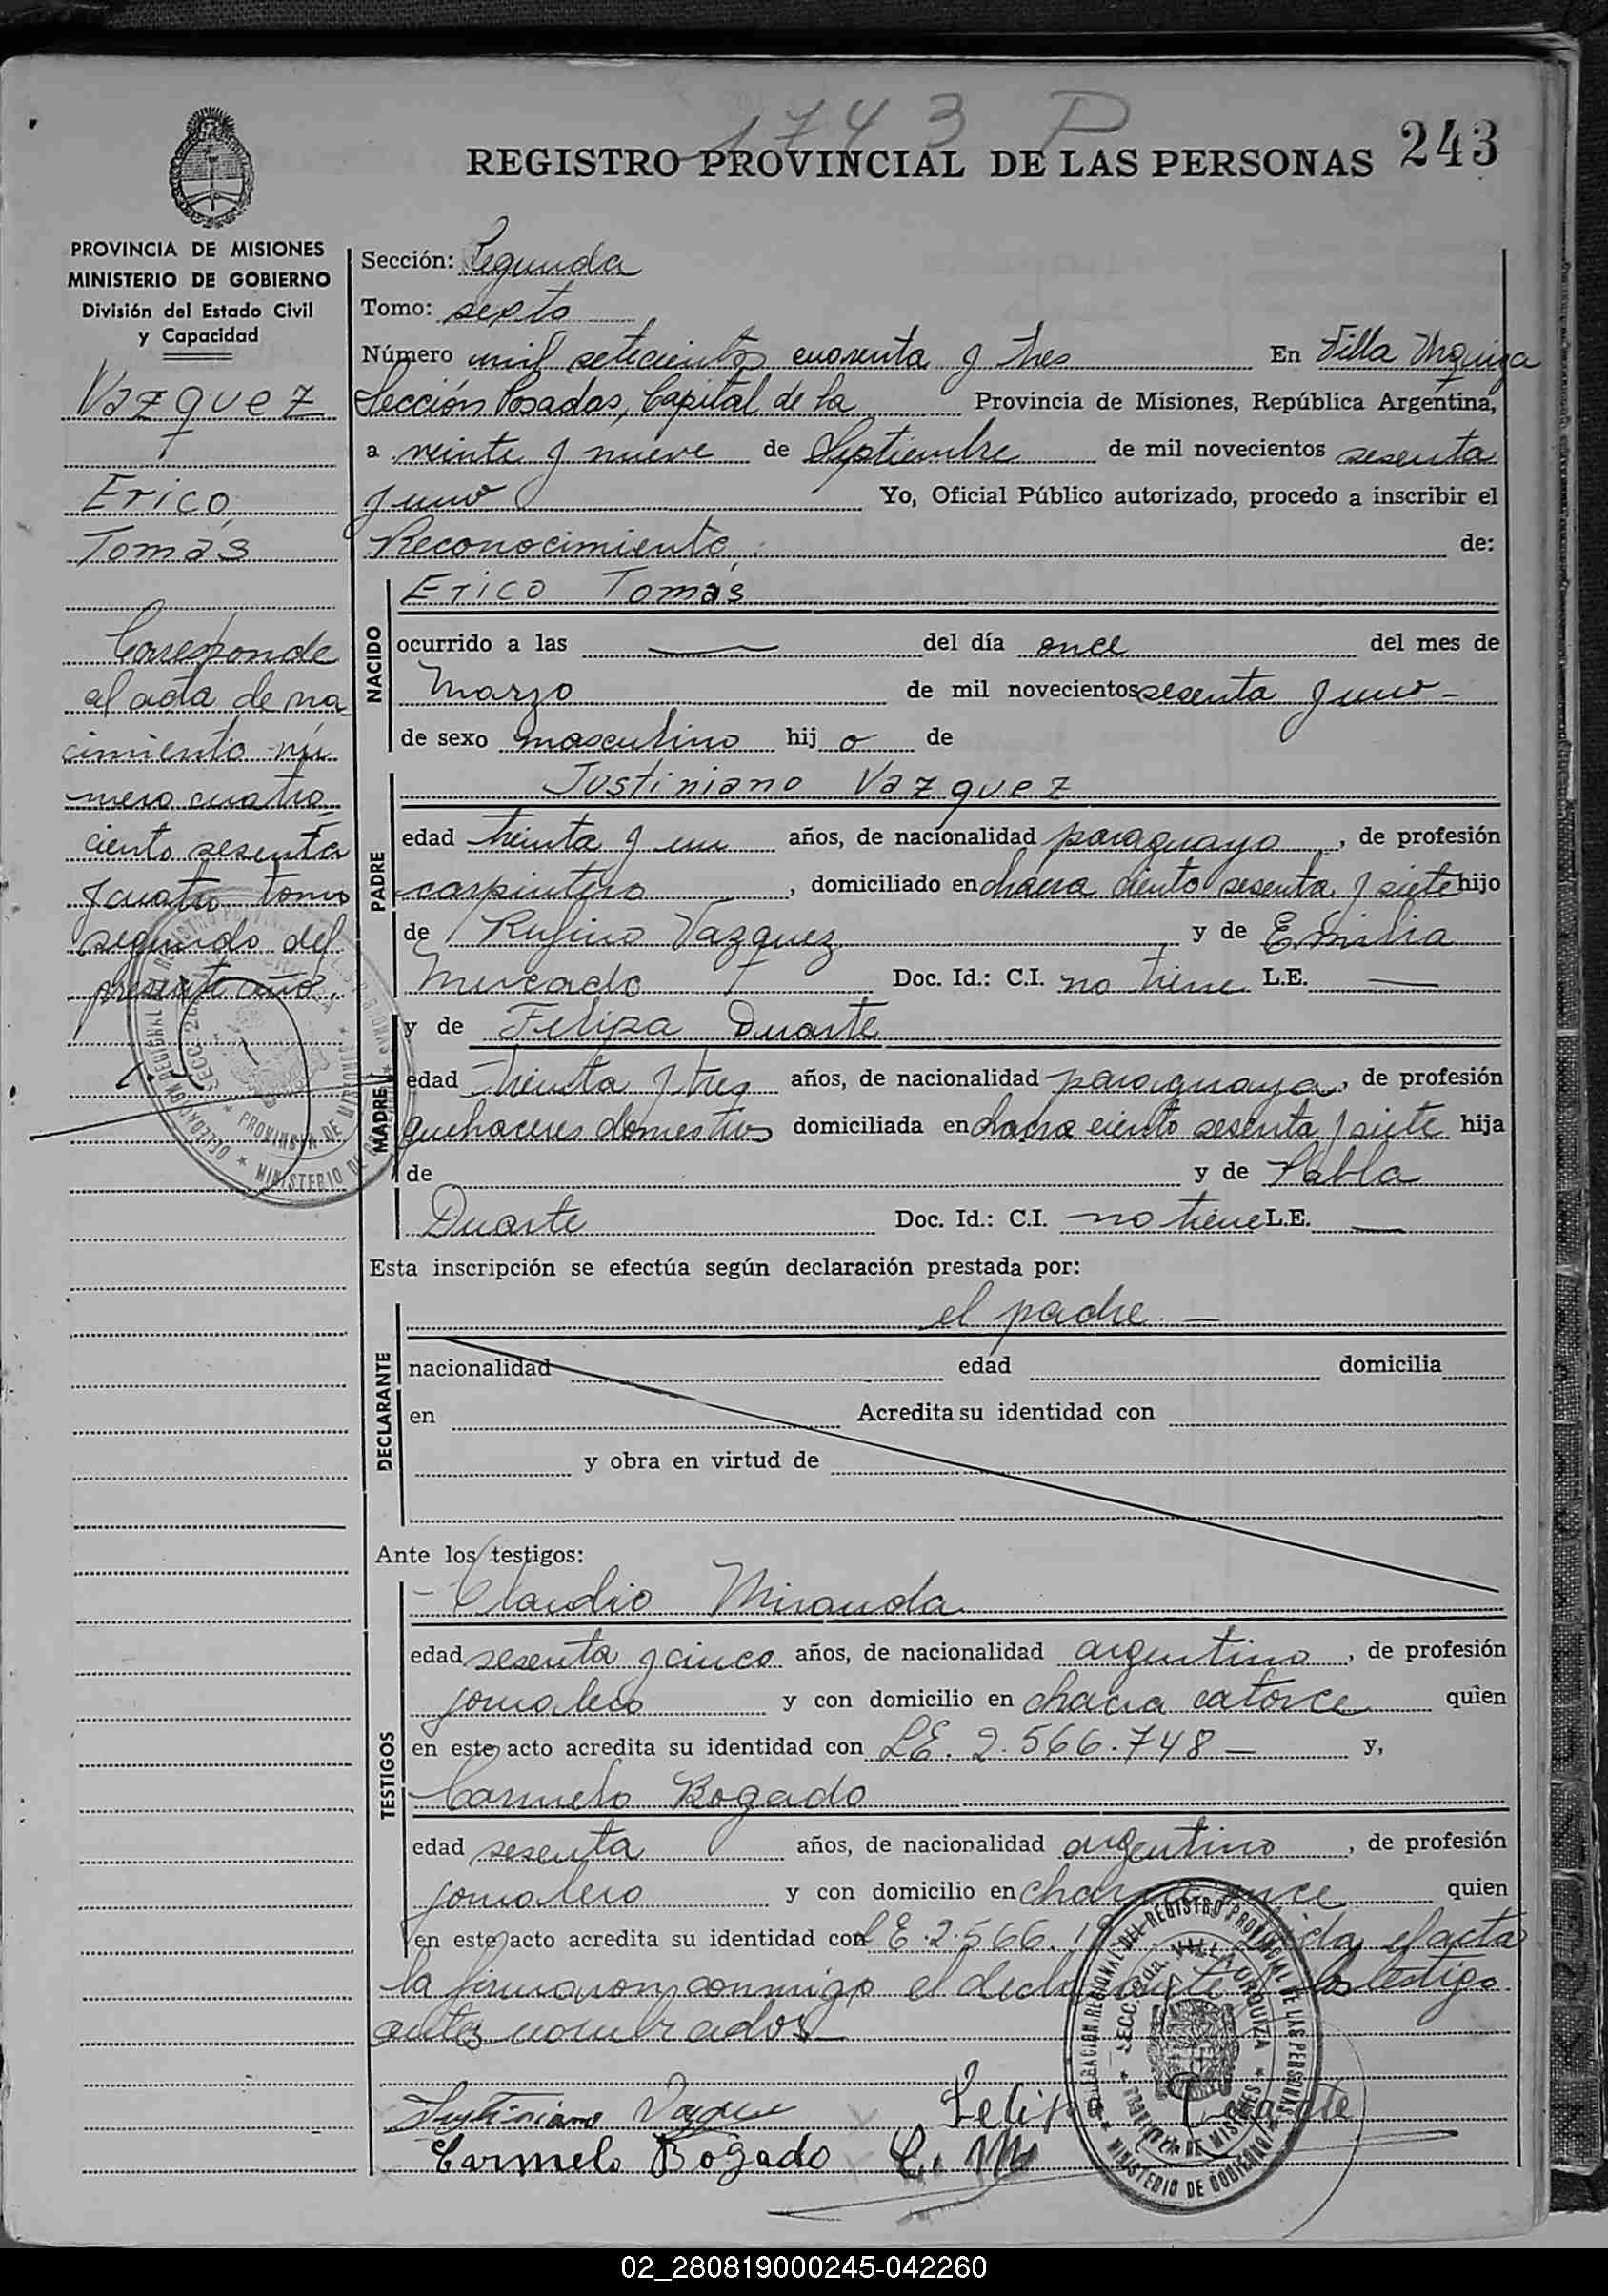 1743 P
REGISTRO PROVINCIAL DE LAS PERSONAS 243
PROVINCIA DE MISIONES
MINISTERIO DE GOBIERNO
División del Estado Civil
y Capacidad
Vazquez
Erico
Tomás
Corresponde
al acta de na
cimiento nú
mero cuatro
ciento sesenta
y cuatro tomo
segundo del
presente año.
Sección: Segunda
Tomo: sexto
Número mil setecientos cuarenta y tres En Villa Urquiza
Sección Posadas, Capital de la Provincia de Misiones, República Argentina,
a veinte y nueve de Septiembre de mil novecientos sesenta
y uno Yo, Oficial Público autorizado, procedo a inscribir el
Reconocimiento: de:
NACIDO
Erico Tomás
ocurrido a las — del día once del mes de
Marzo de mil novecientos sesenta y uno -
de sexo masculino hijo de
PADRE
Justiniano Vazquez
edad treinta y un años, de nacionalidad paraguayo, de profesión
carpintero, domiciliado en chacra ciento sesenta y siete hijo
de Rufino Vazquez y de Emilia
Mercado Doc. Id.: C.I. no tiene L.E. —
MADRE
y de Felipa Duarte
edad treinta y tres años, de nacionalidad paraguaya, de profesión
quehaceres domesticos domiciliada en chacra ciento sesenta y siete hija
de y de Pabla
Duarte Doc. Id.: C.I. no tiene L.E. —
Esta inscripción se efectúa según declaración prestada por:
DECLARANTE
el padre. —
nacionalidad edad domicilia
en Acredita su identidad con
y obra en virtud de
Ante los testigos:
TESTIGOS
- Claudio Miranda
edad sesenta y cinco años, de nacionalidad argentino, de profesión
jornalero y con domicilio en chacra catorce quien
en este acto acredita su identidad con LE. 2.566.748 — y,
Carmelo Bogado
edad sesenta años, de nacionalidad argentino, de profesión
jornalero y con domicilio en chacra once quien
en este acto acredita su identidad con LE.2.566. el acta
la firmaron conmigo el declarante y los testigo
antes nombrados —
Justiniano Vazquez Felipa Duarte
Carmelo Bogado C. M
DELEGACION REGIONAL DEL REGISTRO PROVINCIAL DE LAS PERSONAS
SECC. 2da. VILLA URQUIZA
PROVINCIA DE MISIONES
MINISTERIO DE GOBIERNO
02_280819000245-042260